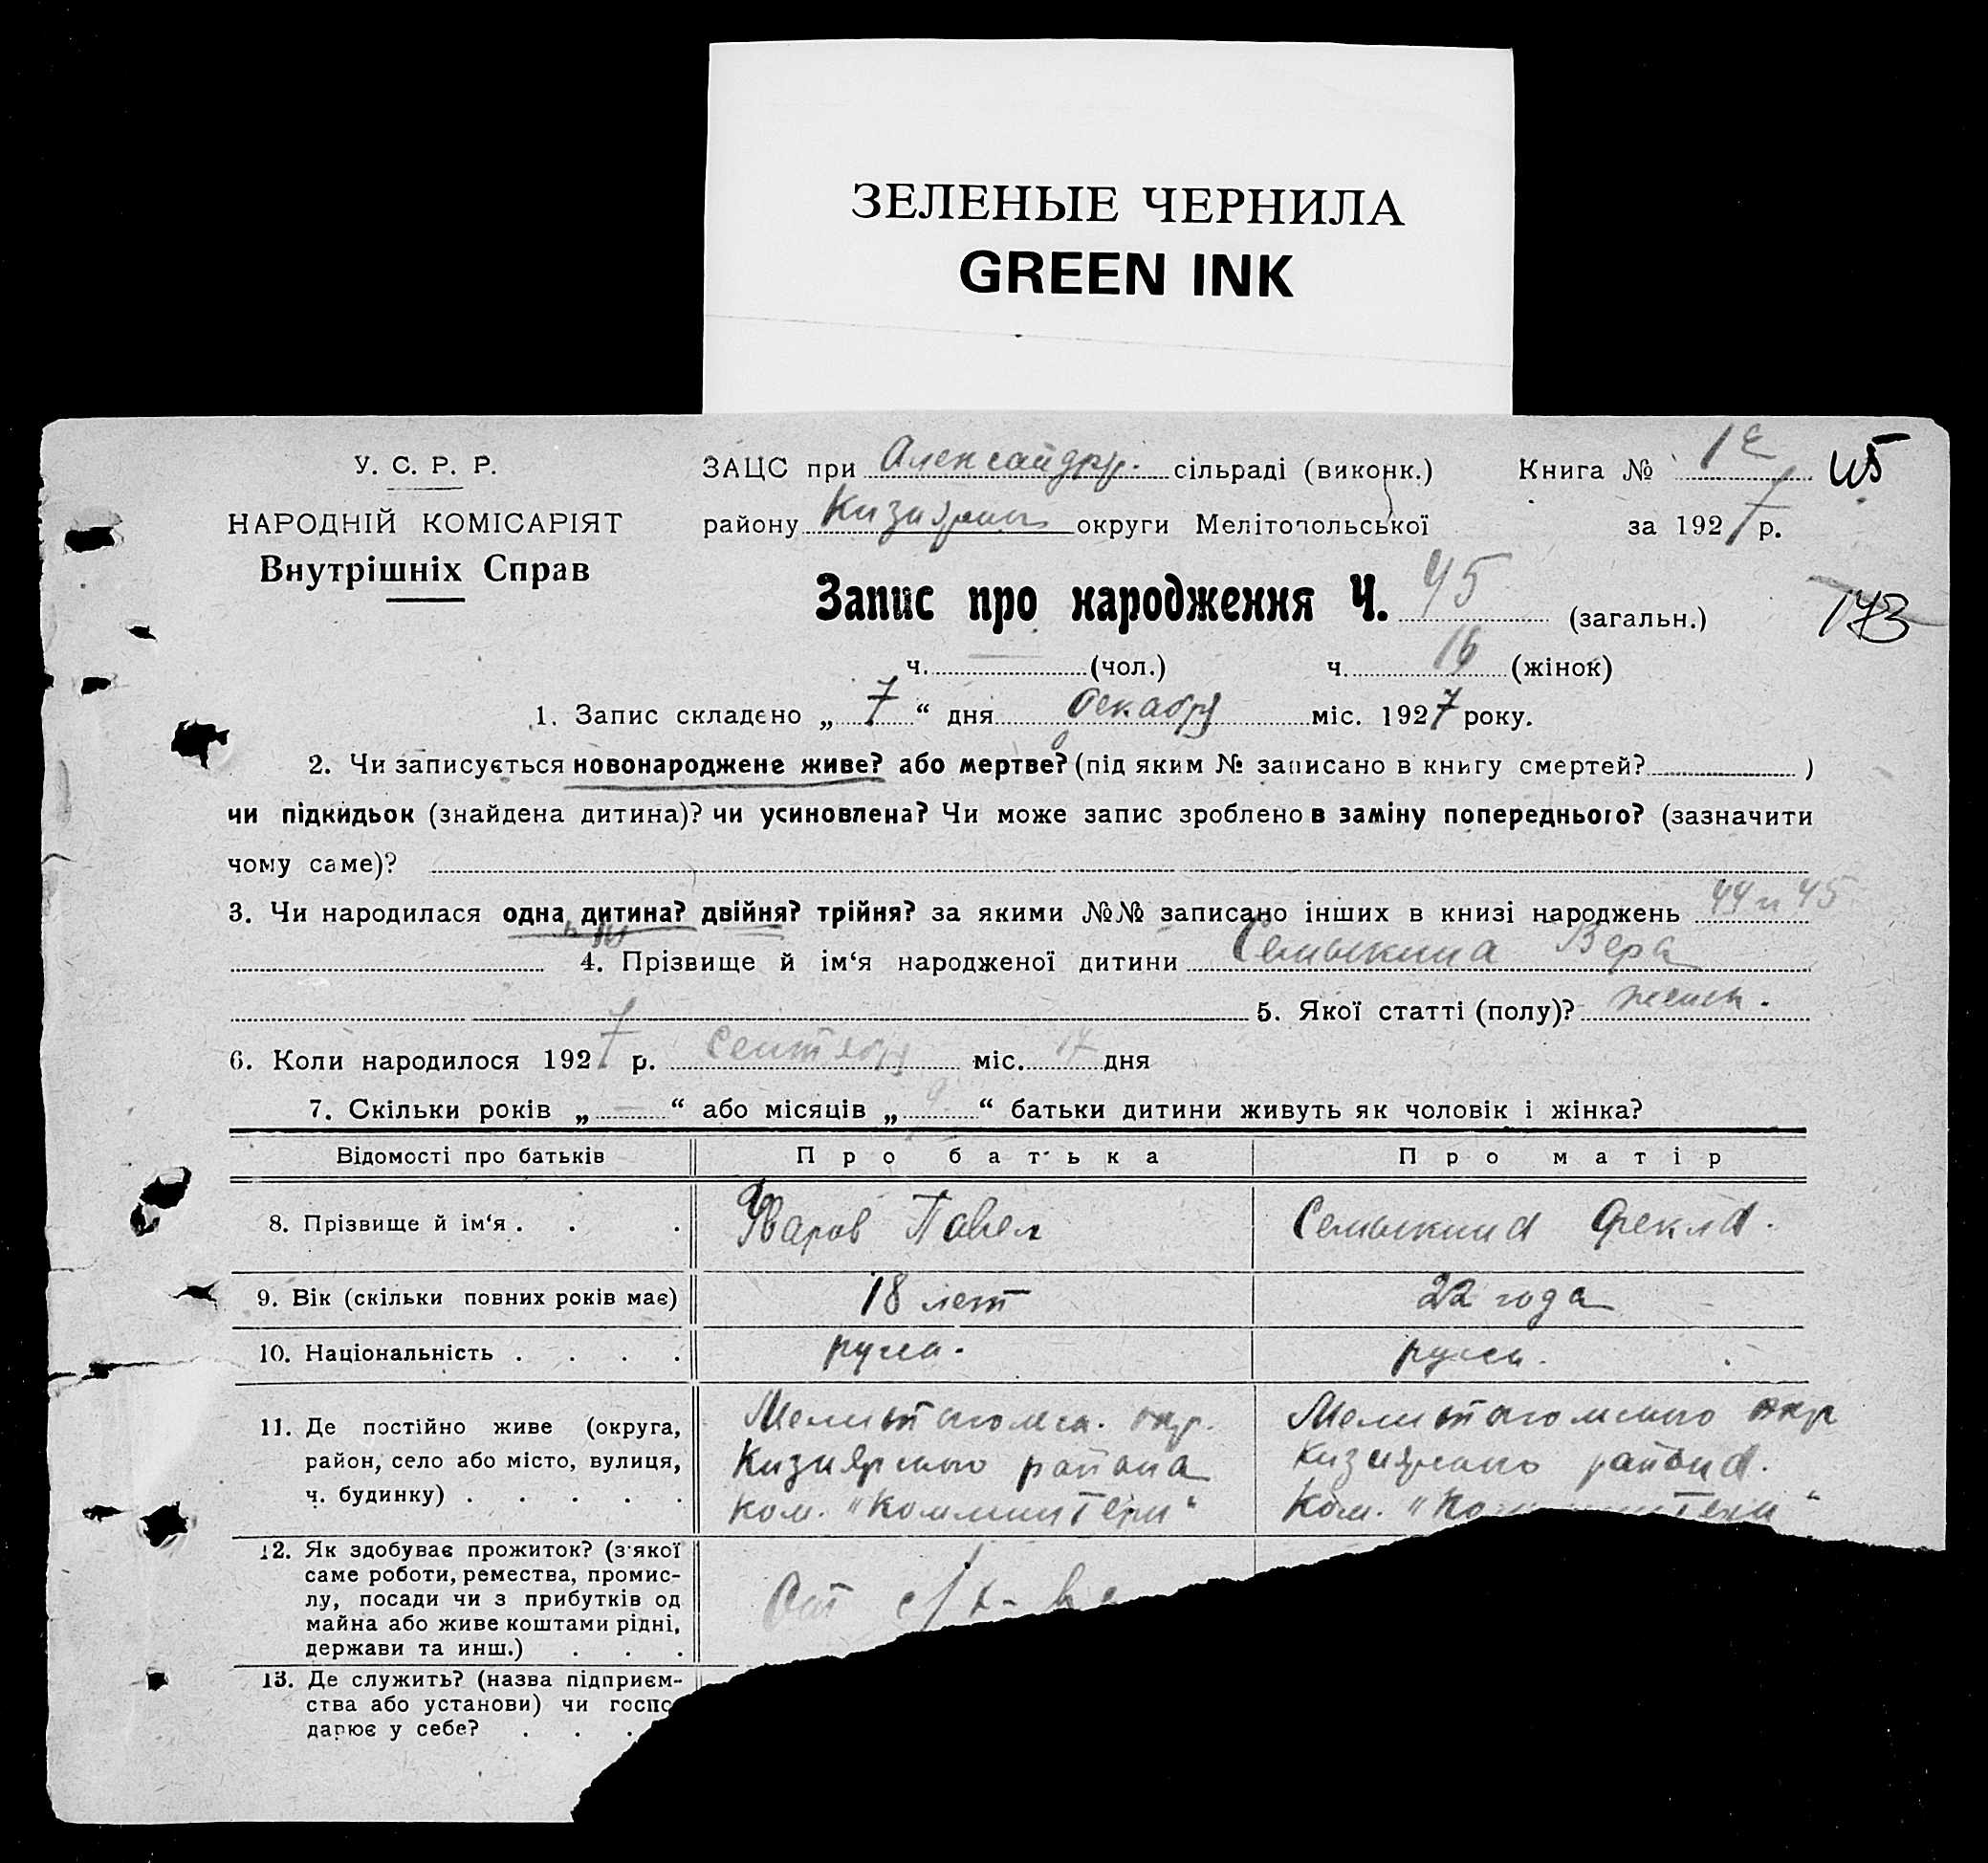 ЗЕЛЕНЫЕ ЧЕРНИЛА
GREEN INK
У. С. Р. Р.
НАРОДНІЙ КОМІСАРІЯТ
Внутрішніх Справ
ЗАЦС при Александр. сільраді (виконк.) Книга №
району Кизиярск округи Мелітопольської за 1927 р.
Запис про народження Ч. 45 (загальн.)
173
ч. (чол.) ч. 16 (жінок)
1. Запис складено „ 7 “ дня декабря міс. 1927 року.
2. Чи записується новонароджене живе? або мертве? (під яким № записано в книгу смертей? )
чи підкидьок (знайдена дитина)? чи усиновлена? Чи може запис зроблено в заміну попереднього? (зазначити
чому саме)?
3. Чи народилася одна дитина? двійня? трійня? за якими №№ записано інших в книзі народжень 44 и 45
4. Прізвище й ім‘я народженої дитини Семыкина Вера
5. Якої статті (полу)? женск.
6. Коли народилося 1927 р. сентября міс. 17 дня
7. Скільки років „ — “ або місяців „ 9 “ батьки дитини живуть як чоловік і жінка?
Відомості про батьків Про батька Про матір
8. Прізвище й ім‘я . . . Уваров Павел Семыкина Фекла.
9. Вік (скільки повних років має) 18 лет 22 года
10. Національність . . . . русск. русск.
11. Де постійно живе (округа, Мелитопольск. окр. Мелитопольского окр
район, село або місто, вулиця, Кизиярского района Кизиярского района.
ч. будинку) . . . . . ком. "Коминтерн" Ком.
12. Як здобуває прожиток? (з якої
саме роботи, ремества, промис-
лу, посади чи з прибутків од От с/х-
майна або живе коштами рідні,
держави та инш.) . . .
13. Де служить? (назва підприєм-
ства або установи) чи госпо
дарює у себе? . . .